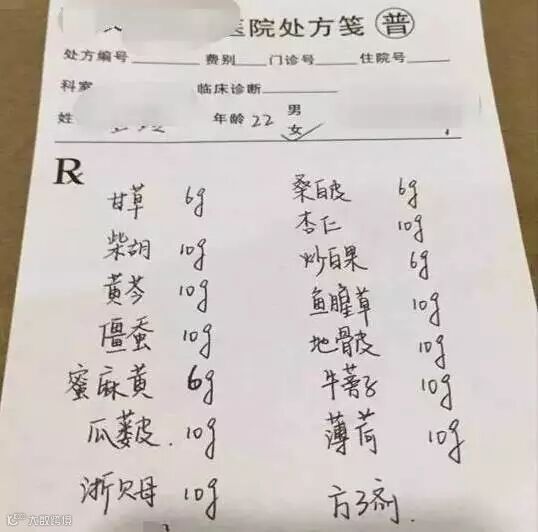 医院处方笺 普
处方编号 费别 门诊号 住院号
科室 临床诊断
姓 年龄 22 男
女✓
R
甘草 6g 桑白皮 6g
柴胡 10g 杏仁 10g
黄芩 10g 炒白果 6g
僵蚕 10g 鱼腥草 10g
蜜麻黄 6g 地骨皮 10g
瓜蒌皮 10g 牛蒡子 10g
浙贝母 10g 薄荷 10g
大数跨境